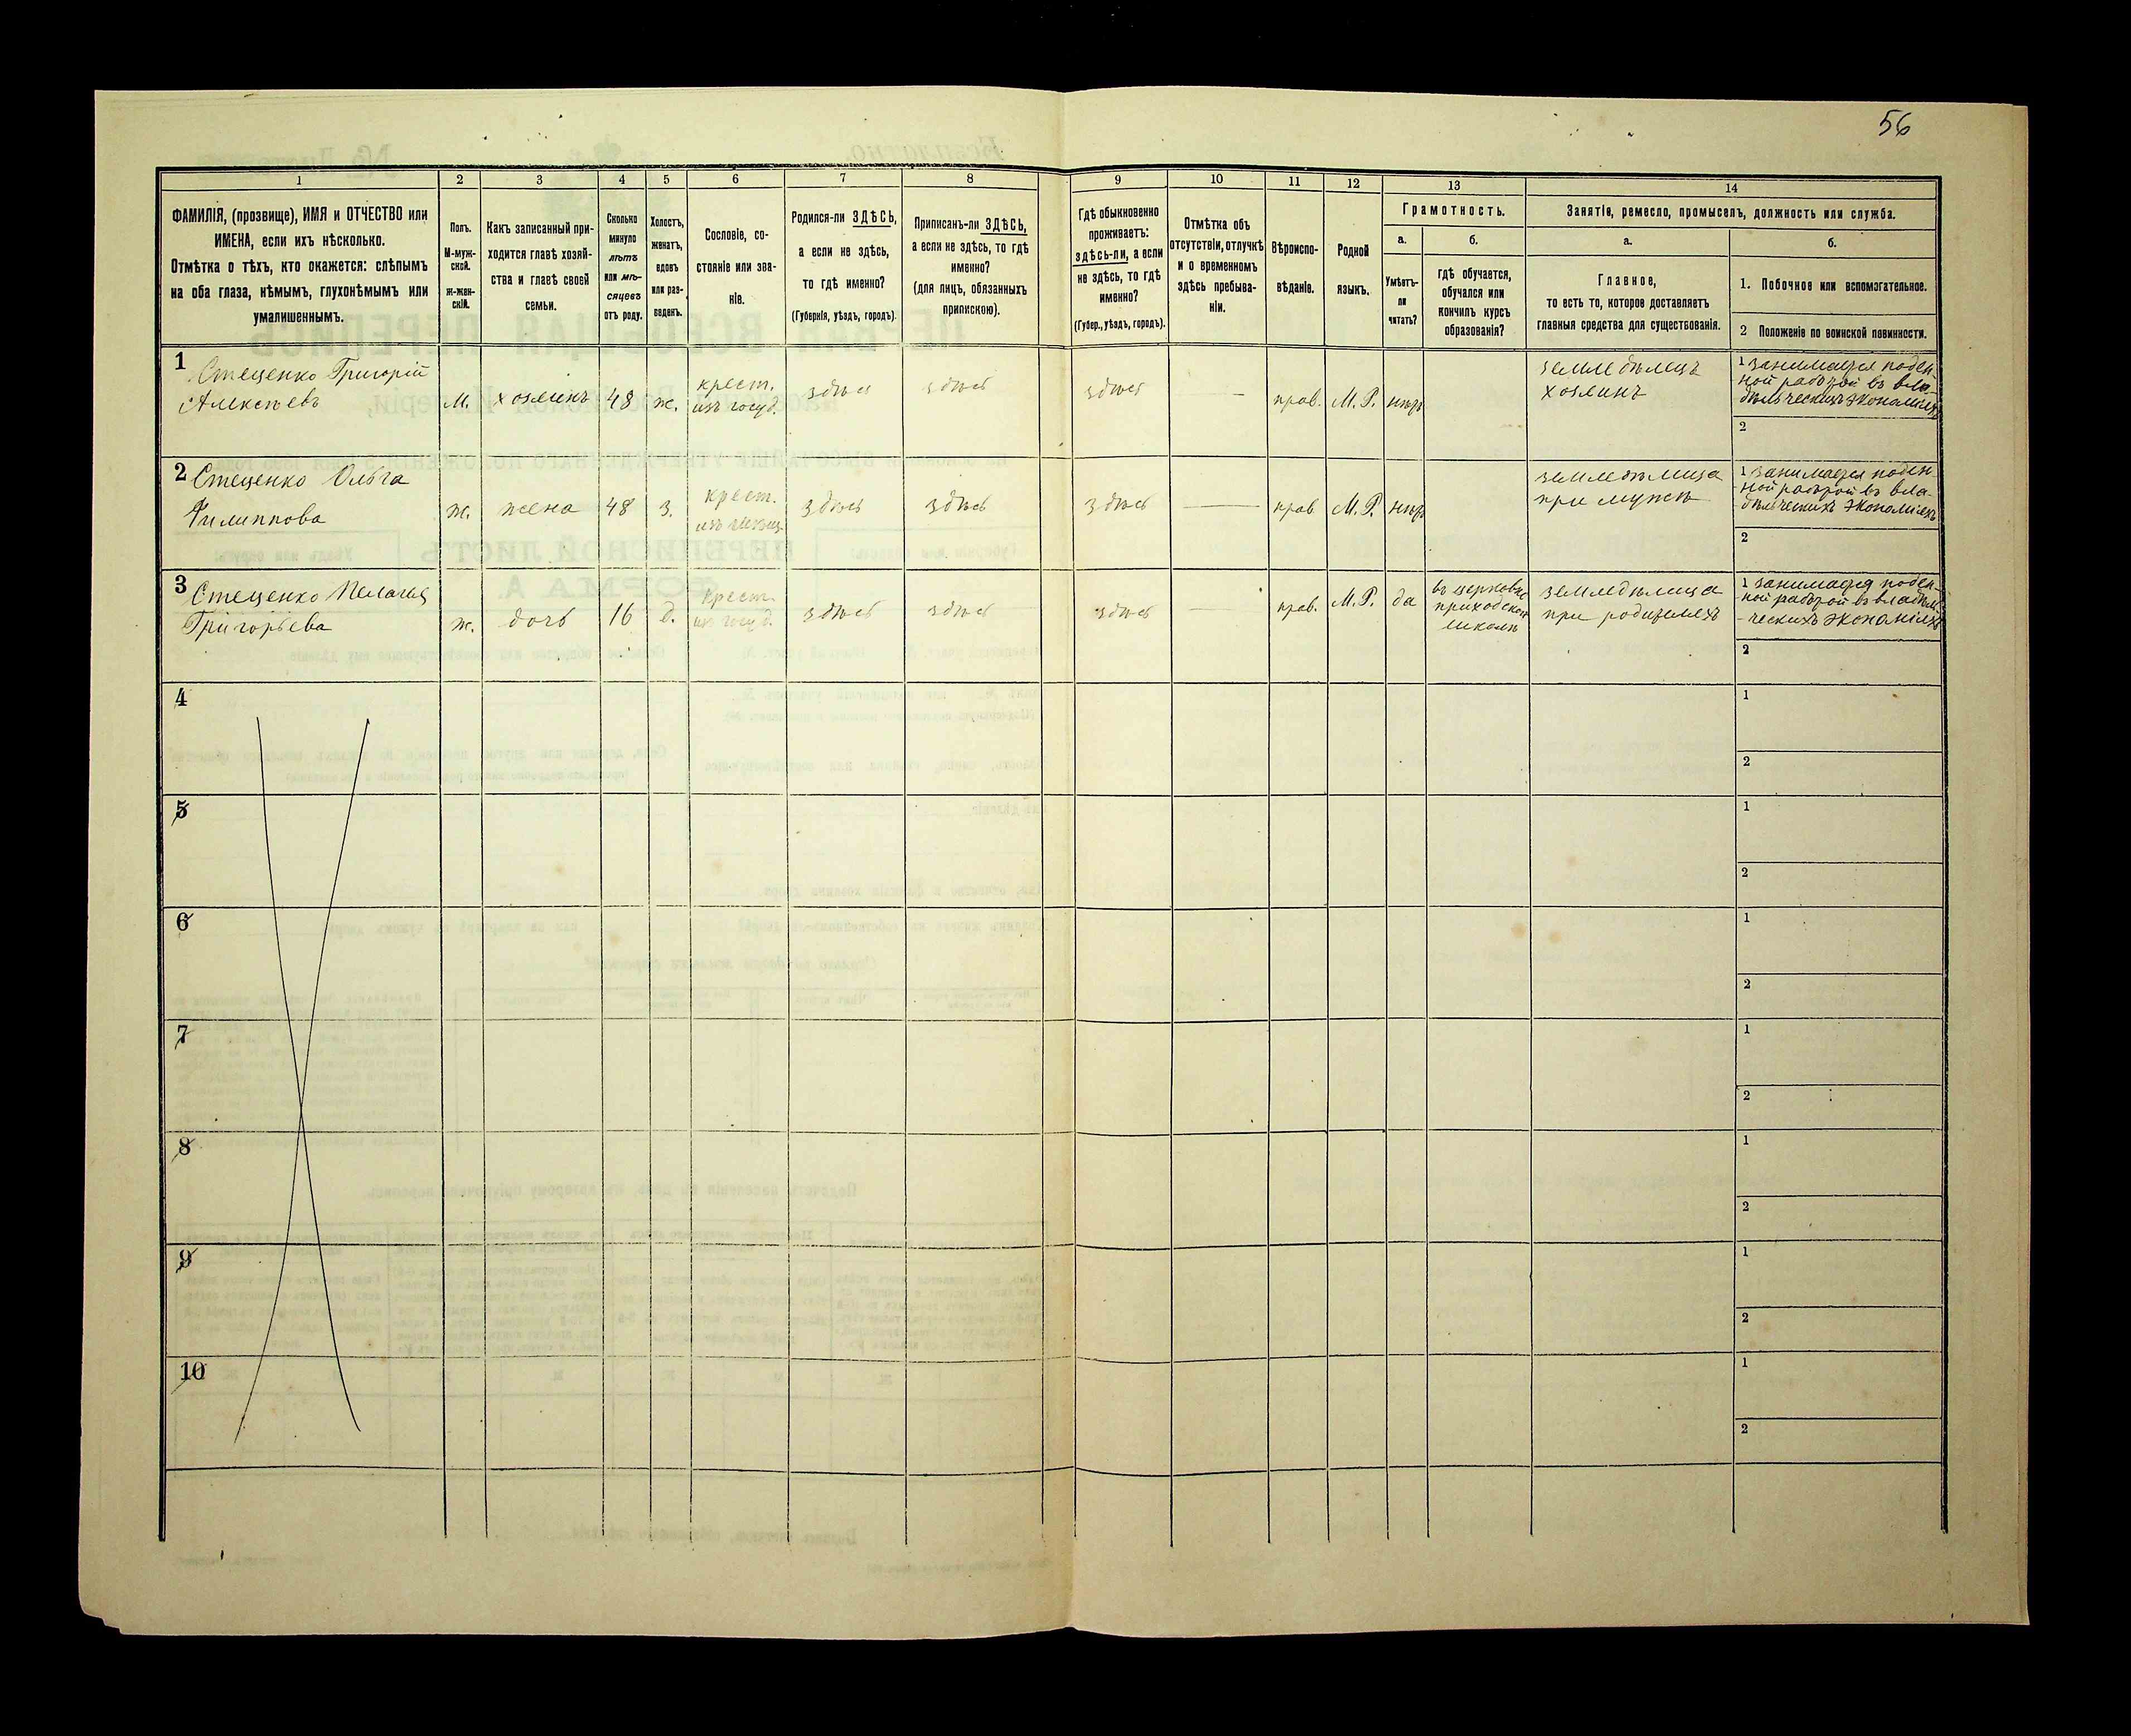 56
1 2 3 4 5 6 7 8 9 10 11 12 13 14
ФАМИЛІЯ, (прозвище), ИМЯ и ОТЧЕСТВО или
ИМЕНА, если ихъ нѣсколько.
Отмѣтка о тѣхъ, кто окажется: слѣпымъ
на оба глаза, нѣмымъ, глухонѣмымъ или
умалишеннымъ.
Полъ.
М-муж-
ской.
Ж-жен-
скій.
Какъ записанный при-
ходится главѣ хозяй-
ства и главѣ своей
семьи.
Сколько
минуло
лѣтъ
или мѣ-
сяцевъ
отъ роду.
Холостъ,
женатъ,
вдовъ
или раз-
веденъ.
Сословіе, со-
стояніе или зва-
ніе.
Родился-ли ЗДѢСЬ,
а если не здѣсь,
то гдѣ именно?
(Губернія, уѣздъ, городъ).
Приписанъ-ли ЗДѢСЬ,
а если не здѣсь, то гдѣ
именно?
(для лицъ, обязанныхъ
припискою).
Гдѣ обыкновенно
проживаетъ:
здѣсь-ли, а если
не здѣсь, то гдѣ
именно?
(Губер., уѣздъ, городъ).
Отмѣтка объ
отсутствіи, отлучкѣ
и о временномъ
здѣсь пребыва-
ніи.
Вѣроиспо-
вѣданіе.
Родной
языкъ.
Грамотность.
а.
Умѣетъ-
ли
читать?
б.
гдѣ обучается,
обучался или
кончилъ курсъ
образованія?
Занятіе, ремесло, промыселъ, должность или служба.
а.
Главное,
то есть то, которое доставляетъ
главныя средства для существованія.
б.
1. Побочное или вспомогательное.
2 Положеніе по воинской повинности.
1
Стеценко Григорій
Алексѣевъ
М.
хозяинъ
48
ж.
крест.
изъ госуд.
здѣсь
здѣсь
здѣсь
—
прав.
М. Р.
нѣтъ
земледѣлецъ
хозяинъ
1 занимается поден-
ной работой въ вла-
дѣльческихъ экономіяхъ
2
2
Стеценко Ольга
Филиппова
ж.
жена
48
з.
крест.
здѣсь
здѣсь
здѣсь
—
прав
М. Р.
нѣтъ
земледѣлица
при мужѣ
1 занимается поден
-ной работой въ вла-
-дѣльческихъ экономіяхъ
2
3
Стеценко Пелагія
Григорьева
ж.
дочь
16
д.
крест.
изъ госуд.
здѣсь
здѣсь
здѣсь
—
прав.
М. Р.
да
въ церковно
приходской
школѣ
земледѣлица
при родителяхъ
1 занимается поден-
-ной работой въ владѣль
-ческихъ экономіяхъ
2
4
1
2
5
1
2
6
1
2
7
1
2
8
1
2
9
1
2
10
1
2